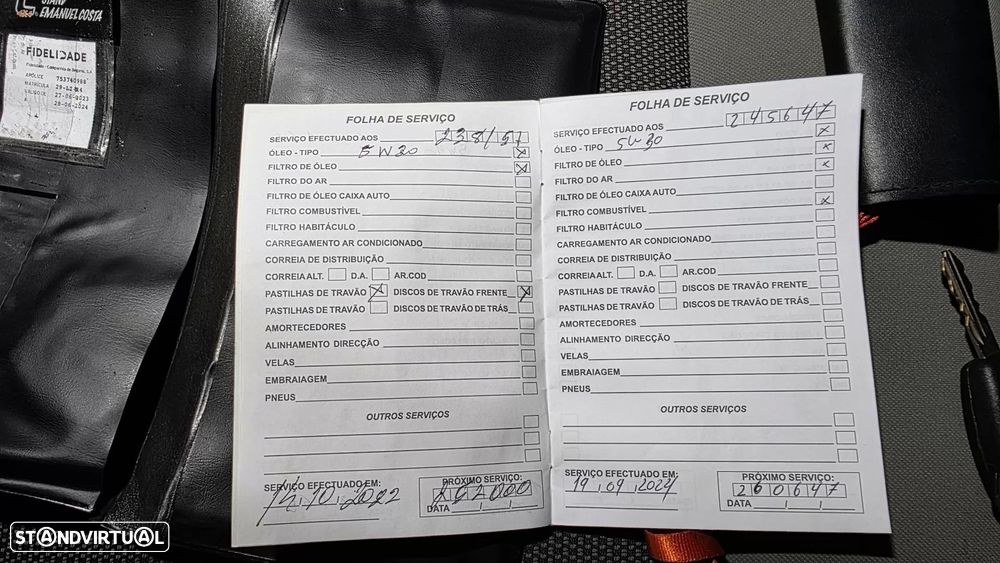 STAND
EMANUEL COSTA
FIDELIDADE
Fidelidade - Companhia de Seguros, S.A.
APÓLICE 753760988
MATRÍCULA
VÁLIDO DE 27-06-2023
A 28-06-2024
FOLHA DE SERVIÇO
SERVIÇO EFECTUADO AOS
ÓLEO - TIPO 5W30
FILTRO DE ÓLEO
FILTRO DO AR
FILTRO DE ÓLEO CAIXA AUTO
FILTRO COMBUSTÍVEL
FILTRO HABITÁCULO
CARREGAMENTO AR CONDICIONADO
CORREIA DE DISTRIBUIÇÃO
CORREIA ALT. D.A. AR.COD
PASTILHAS DE TRAVÃO DISCOS DE TRAVÃO FRENTE
PASTILHAS DE TRAVÃO DISCOS DE TRAVÃO DE TRÁS
AMORTECEDORES
ALINHAMENTO DIRECÇÃO
VELAS
EMBRAIAGEM
PNEUS
OUTROS SERVIÇOS
SERVIÇO EFECTUADO EM:
10, 2022
PRÓXIMO SERVIÇO:
DATA
FOLHA DE SERVIÇO
SERVIÇO EFECTUADO AOS 245647
ÓLEO - TIPO 5W30
FILTRO DE ÓLEO
FILTRO DO AR
FILTRO DE ÓLEO CAIXA AUTO
FILTRO COMBUSTÍVEL
FILTRO HABITÁCULO
CARREGAMENTO AR CONDICIONADO
CORREIA DE DISTRIBUIÇÃO
CORREIA ALT. D.A. AR.COD
PASTILHAS DE TRAVÃO DISCOS DE TRAVÃO FRENTE
PASTILHAS DE TRAVÃO DISCOS DE TRAVÃO DE TRÁS
AMORTECEDORES
ALINHAMENTO DIRECÇÃO
VELAS
EMBRAIAGEM
PNEUS
OUTROS SERVIÇOS
SERVIÇO EFECTUADO EM:
19, 09, 2024
PRÓXIMO SERVIÇO:
260647
DATA
STANDVIRTUAL